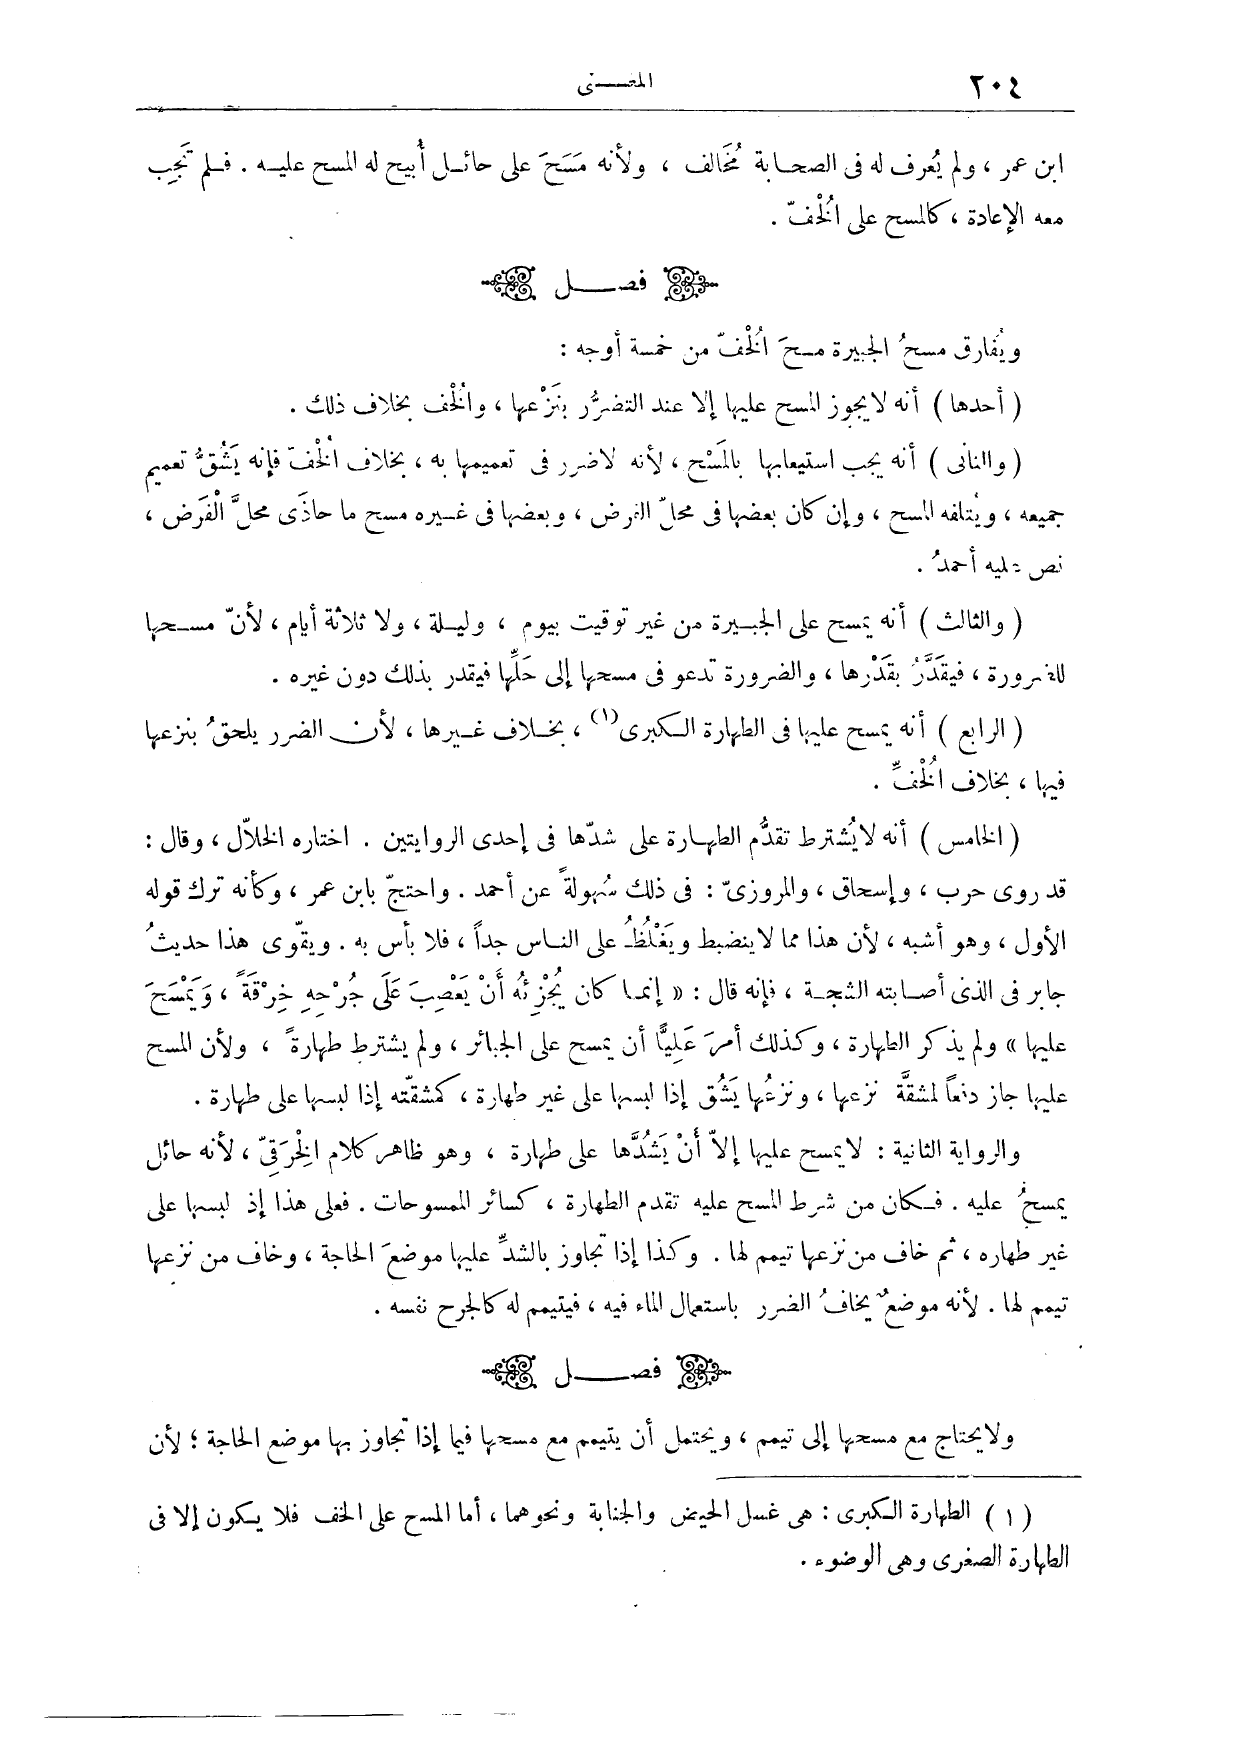 ٢٠٤
المغنى
ابن عمر ، ولم يُعرف له فى الصحابة مُخَالف ، ولأنه مَسَحَ على حائل أُبيح له المسح عليه . فلم تَجِب
معه الإعادة ، كالمسح على الُخْفّ .
فصل
ويُفارق مسحُ الجبيرة مسحَ الُخْفّ من خمسة أوجه :
( أحدها ) أنه لا يجوز المسح عليها إلا عند التضرُّر بنَزْعها ، والُخْف بخلاف ذلك .
( والثانى ) أنه يجب استيعابها بالمَسْح ، لأنه لاضرر فى تعميمها به ، بخلاف الُخْفّ فإنه يَشُقُّ تعميم
جميعه ، ويُتلفه المسح ، وإن كان بعضها فى محلّ الفرض ، وبعضها فى غيره مسح ما حاذَى محلَّ الْفَرض ،
نص عليه أحمدُ .
( والثالث ) أنه يمسح على الجبيرة من غير توقيت بيوم ، وليلة ، ولا ثلاثة أيام ، لأنّ مسحها
للضرورة ، فيقَدَّرُ بقَدْرها ، والضرورة تدعو فى مسحها إلى حَلِّها فيقدر بذلك دون غيره .
( الرابع ) أنه يمسح عليها فى الطهارة الكبرى(١) ، بخلاف غيرها ، لأن الضرر يلحقُ بنزعها
فيها ، بخلاف الُخْفِّ .
( الخامس ) أنه لا يُشترط تقدُّم الطهارة على شدّها فى إحدى الروايتين . اختاره الخلاّل ، وقال :
قد روى حرب ، وإسحاق ، والمروزىّ : فى ذلك سُهولةً عن أحمد . واحتجّ بابن عمر ، وكأنه ترك قوله
الأول ، وهو أشبه ، لأن هذا مما لا ينضبط ويَغْلُظُ على الناس جداً ، فلا بأس به . ويقوّى هذا حديثُ
جابر فى الذى أصابته الشجة ، فإنه قال : « إنما كان يُجْزِئُه أَنْ يَعْصِبَ عَلَى جُرْحِهِ خِرْقَةً ، وَيَمْسَحَ
عليها » ولم يذكر الطهارة ، وكذلك أمرَ عَلِيًّا أن يمسح على الجبائر ، ولم يشترط طهارةً ، ولأن المسح
عليها جاز دفعاً لمشقَّة نزعها ، ونزعُها يَشُق إذا لبسها على غير طهارة ، كمشقّته إذا لبسها على طهارة .
والرواية الثانية : لا يمسح عليها إلاّ أَنْ يَشُدَّها على طهارة ، وهو ظاهر كلام الِخْرَقِىّ ، لأنه حائل
يمسحُ عليه . فكان من شرط المسح عليه تقدم الطهارة ، كسائر الممسوحات . فعلى هذا إذ لبسها على
غير طهاره ، ثم خاف من نزعها تيمم لها . وكذا إذا تجاوز بالشدِّ عليها موضعَ الحاجة ، وخاف من نزعها
تيمم لها . لأنه موضعٌ يخافُ الضرر باستعمال الماء فيه ، فيتيمم له كالجرح نفسه .
فصل
ولا يحتاج مع مسحها إلى تيمم ، ويحتمل أن يتيمم مع مسحها فيما إذا تجاوز بها موضع الحاجة ؛ لأن
( ١ ) الطهارة الكبرى : هى غسل الحيض والجنابة ونحوهما ، أما المسح على الخف فلا يكون إلا فى
الطهارة الصغرى وهى الوضوء .